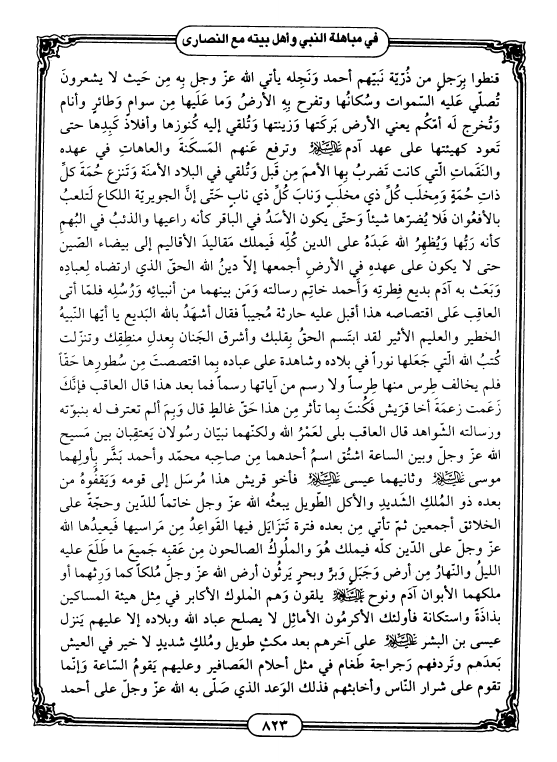 في مباهلة النبي وأهل بيته مع النصارى
قنطوا بِرَجلٍ من ذُرّية نَبيّهم أحمد وَنَجله يأتي الله عزّ وجل بِه مِن حَيث لا يشعرونَ
تُصلّي عَليهِ السّموات وسُكانُها وتفرح بِهِ الأرضُ وَما عَلَيها مِن سوام وَطائرٍ وأنام
وَتُخرج لَه أمّكُم يعني الأرض بَرَكتَها وَزينتَها وَتُلقي إليه كُنوزها وأفلاذَ كَبِدِها حتى
تَعود كهيئتها على عهد آدم عليه السلام وترفع عَنهم المَسكنَة والعاهات في عهده
والنَقَمات الّتي كانت تَضربُ بِها الأممَ مِن قَبل وَتُلقي في البلاد الأمنَة وَتنزع حُمَة كلّ
ذاتِ حُمَةٍ وَمِخلَب كُلّ ذي مخلَبٍ وَنابَ كُلّ ذي نابٍ حَتّى إنَّ الجويريّة اللكاع لَتلعبُ
بالأفعُوان فَلا يُضرّها شيئاً وَحتّى يكون الأسَدُ في الباقر كأنه راعيها والذئبُ في البُهمِ
كأنه رَبُّها وَيُظهِرُ الله عَبدَهُ على الدين كُلّهِ فَيملك مَقاليدَ الأقاليم إلى بيضاء الصّين
حتى لا يكون على عهدهِ في الأرضِ أجمعها إلاّ دينُ الله الحقّ الذي ارتضاه لِعِبادِه
وَبَعَث به آدَم بديع فِطرتِه وَأحمد خاتِم رسالته وَمَن بينهما من أنبيائِه وَرُسُلِه فلمّا أتى
العاقِب عَلى اقتصاصه هذا أقبل عليه حارثة مُجيباً فقال أشهَدُ بالله البَديع يا أيّها النَبيهُ
الخطير والعليم الأثير لقد ابتَسم الحقُ بِقلبك وأشرق الجَنان بِعدلِ منطِقِك وتنزّلت
كُتبُ الله الّتي جَعَلها نوراً في بلاده وشاهدة على عباده بِما اقتصصتَ مِن سُطورِها حَقّاً
فلم يخالف طِرس منها طِرساً ولا رسم من آياتها رسماً فما بعد هذا قال العاقب فإنّكَ
زَعمت زعمَةَ أخا قرَيش فَكُنتَ بِما تأثر مِن هذا حَقّ غالطٍ قال وَبِمَ ألم تعترف له بنبوّته
ورسالته الشّواهد قال العاقب بلى لَعمْرُ الله ولكنّهما نبيّان رسولان يَعتقِبان بين مَسيح
الله عزّ وجلّ وبين الساعة اشتُق اسمُ أحدهما مِن صاحِبه محمد وأحمد بَشَّر بِأولِهما
موسى عليه السلام وثانيهما عيسى عليه السلام فأخو قريش هذا مُرسَل إلى قومه وَيَقفُوهُ من
بعده ذو المُلكِ الشَديدِ والأكل الطّويل يبعثُه الله عزّ وجل خاتماً للدّين وحجّة على
الخلائق أجمعين ثمّ تأتي مِن بعده فترة تَتزَايَل فيها القَواعِدُ مِن مَراسيها فَيعيدُها الله
عزّ وجلّ على الدّين كلّه فيملك هُوَ والملُوكُ الصالحون مِن عَقبِه جَميعَ ما طَلَعَ عليه
الليلُ والنّهارُ مِن أرضٍ وَجَبَلٍ وَبرٍّ وبحرٍ يَرثُون أرض الله عزّ وجلّ مُلكاً كما وَرِثهما أو
ملكهما الأبوان آدَم ونوح عليه السلام يلقونَ وَهم الملوك الأكابر في مِثل هيئة المساكين
بذاذَةً واستكانة فأولئك الأكرمُون الأماثِل لا يصلح عباد الله وبلاده إلا عليهم يَنزل
عيسى بن البشر عليه السلام على آخرهم بعد مكثٍ طويل ومُلكٍ شديدٍ لا خير في العيش
بَعدَهم وتَردفهم رَجراجة طَغام في مثل أحلام العصافير وعليهم يَقومُ السّاعة وَإنّما
تقوم على شرار النّاس وأخابثهم فذلك الوَعد الذي صَلّى به الله عزّ وجلّ على أحمد
٨٢٣